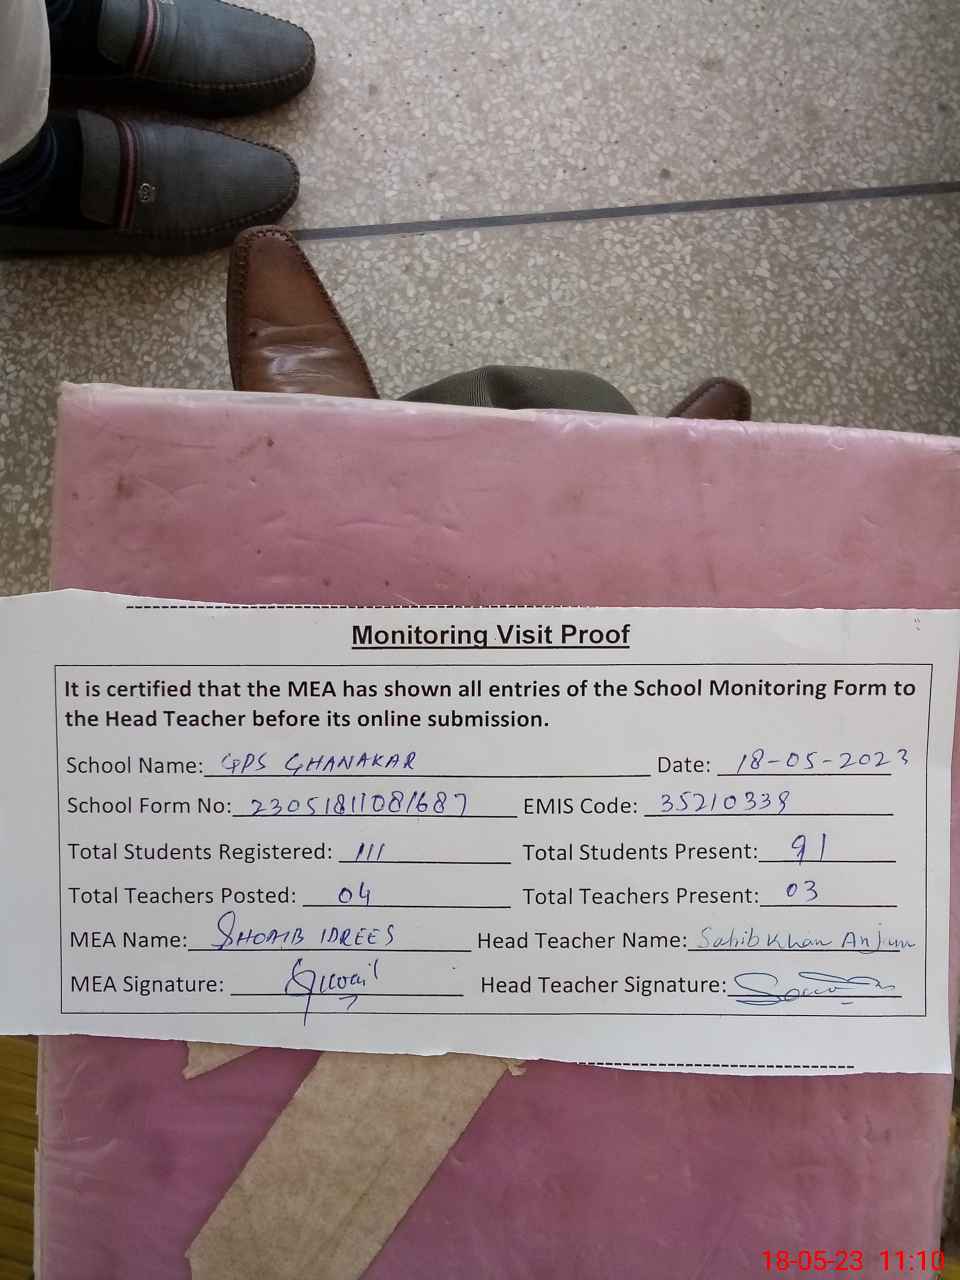 Monitoring Visit Proof
It is certified that the MEA has shown all entries of the School Monitoring Form to
the Head Teacher before its online submission.
School Name: GPS GHANAKAR Date: 18-05-2023
School Form No: 23051811081687 EMIS Code: 35210339
Total Students Registered: 111 Total Students Present: 91
Total Teachers Posted: 04 Total Teachers Present: 03
MEA Name: SHOAIB IDREES Head Teacher Name: Sahib Khan Anjum
MEA Signature: Head Teacher Signature:
18-05-23 11:10